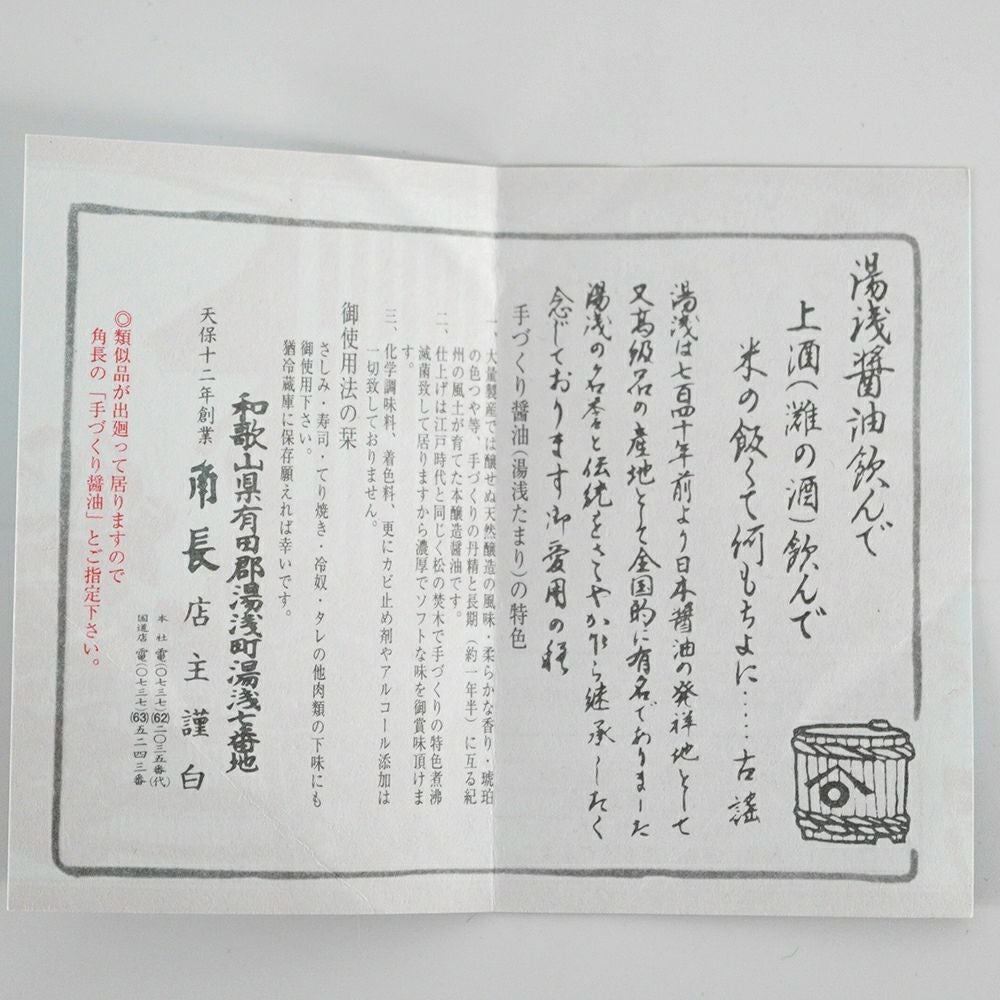 湯浅醤油飲んで
上酒(灘の酒)飲んで
米の飯くて何もちよに……古謡
湯浅は七百四十年前より日本醤油の発祥地として
又高級品の産地として全国的に有名でありました
湯浅の名香と伝統をささやか乍ら継承したく
念じております御愛用の程
手づくり醤油(湯浅たまり)の特色
一、大量製産では醸せぬ天然醸造の風味・柔らかな香り・琥珀
の色つや等、手づくりの丹精と長期(約一年半)に亙る紀
州の風土が育てた本醸造醤油です。
二、仕上げは江戸時代と同じく松の焚木で手づくりの特色煮沸
滅菌致して居りますから濃厚でソフトな味を御賞味頂けま
す。
三、化学調味料、着色料、更にカビ止め剤やアルコール添加は
一切致しておりません。
御使用法の栞
さしみ・寿司・てり焼き・冷奴・タレの他肉類の下味にも
御使用下さい。
猶冷蔵庫に保存願えれば幸いです。
和歌山県有田郡湯浅町湯浅七番地
天保十二年創業 角長 店主謹白
本社 電(〇七三七)(62)二〇三五番(代)
国道店 電(〇七三七)(63)五二四三番
◎類似品が出廻って居りますので
角長の「手づくり醤油」とご指定下さい。